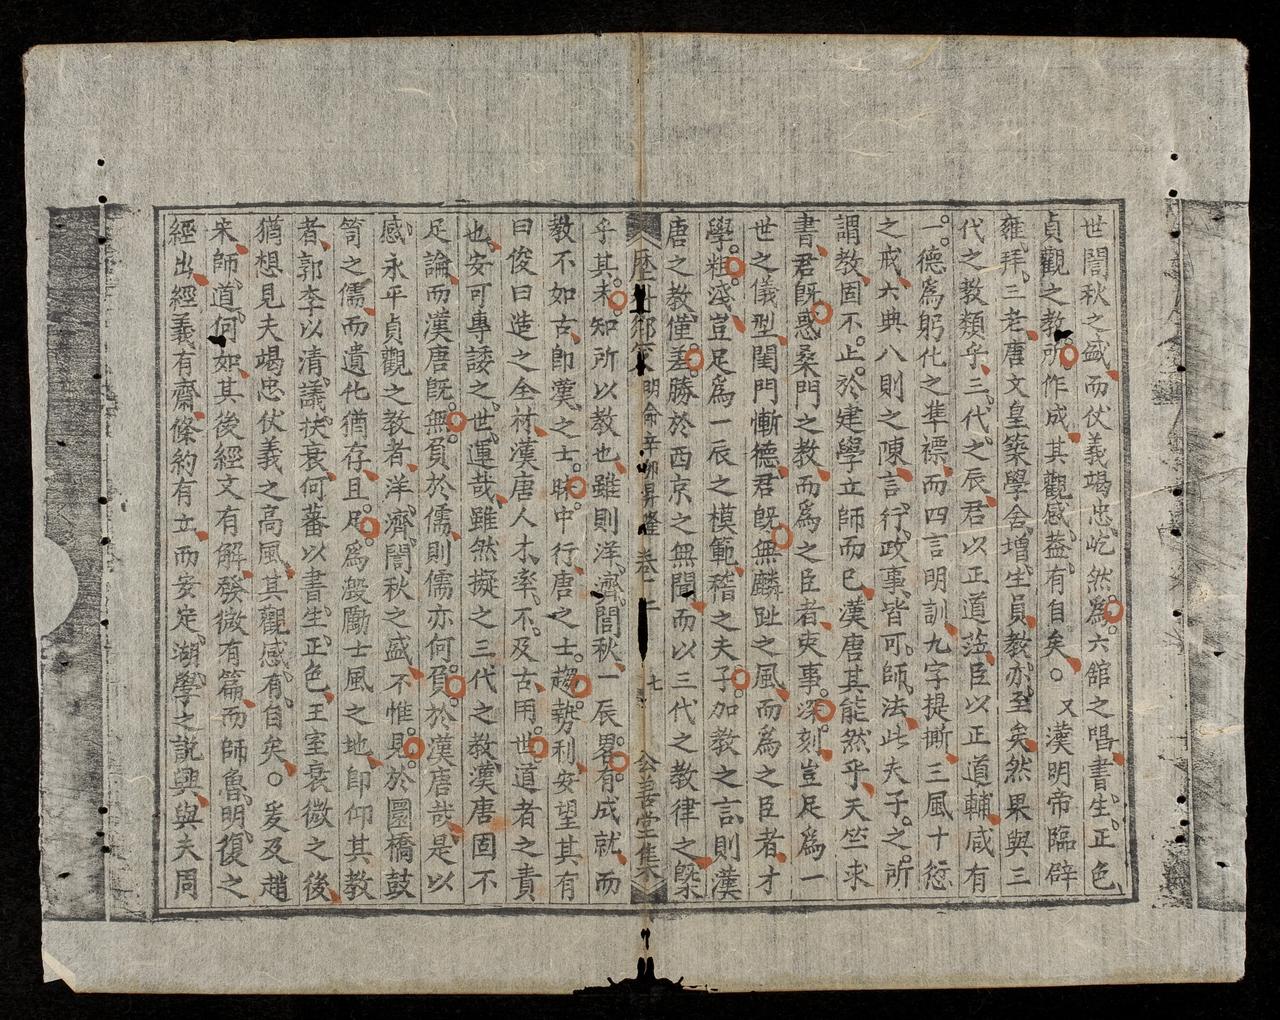 世誾秋之盛而伏義竭忠屹然為六館之唱書生正色
貞觀之教所作成其觀感葢有自矣○又漢明帝臨辟
雍拜三老唐文皇築學舍增生員教亦至矣然果與三
代之教類乎三代之辰君以正道蒞臣以正道輔咸有
一德為躬化之準標而四言明訓九字提撕三風十愆
之戒六典八則之陳言行政事皆可師法此夫子之所
謂教固不止於建學立師而已漢唐其能然乎天竺求
書君既惑桑門之教而為之臣者吏事深刻豈足為一
世之儀型閨門慚德君既無麟趾之風而為之臣者才
學粗淺豈足為一辰之模範稽之夫子加教之言則漢
唐之教僅差勝於西京之無聞而以三代之教律之槩
明命辛卯昇隆 卷二 七 公善堂集
乎其未知所以教也雖則洋濟誾秋一辰畧有成就而
教不如古即漢之士昧中行唐之士趨勢利安望其有
曰俊曰造之全材漢唐人才率不及古用世道者之責
也安可專諉之世運哉雖然擬之三代之教漢唐固不
足論而漢唐既無負於儒則儒亦何負於漢唐哉是以
感永平貞觀之教者洋濟誾秋之盛不惟見於圜橋鼓
笥之儒而遺化猶存且足為激勵士風之地即仰其教
者郭李以清議扶衰何蕃以書生正色王室衰微之後
猶想見夫竭忠伏義之高風其觀感有自矣○爰及趙
宋師道何如其後經文有解發微有篇而師魯明復之
經出經義有齋條約有立而安定湖學之說興與夫周